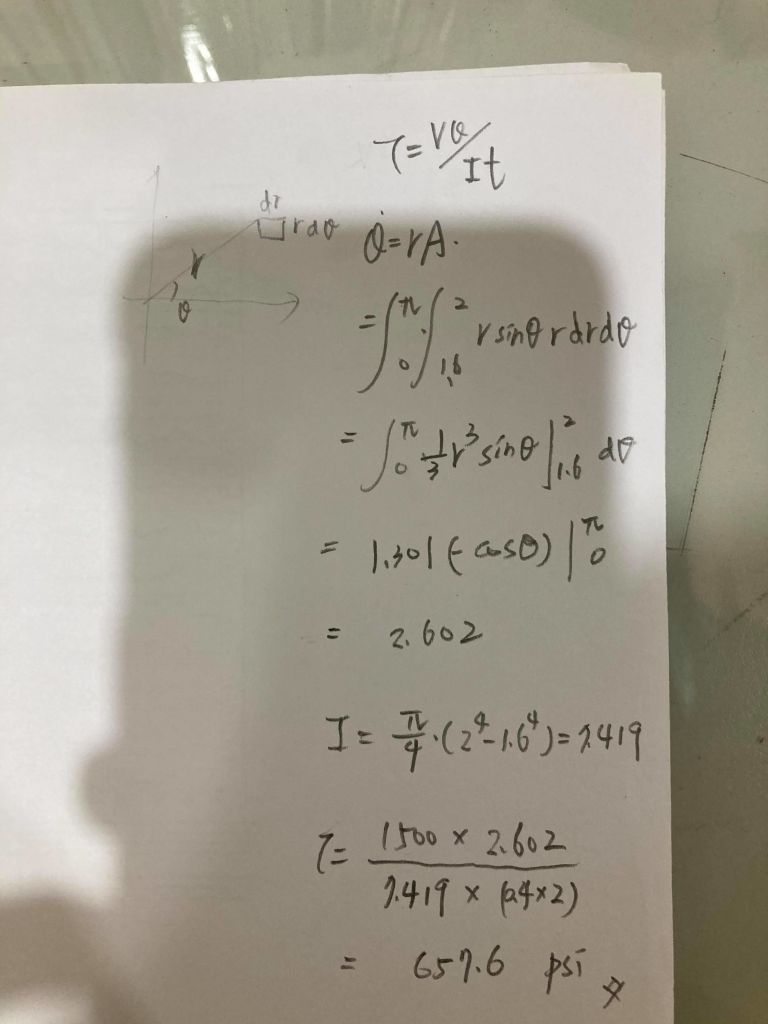 τ = VQ/It
dr
rdθ
r
θ
Q = rA.
= ∫₀^π ∫₁.₆² r sinθ r dr dθ
= ∫₀^π 1/3 r³ sinθ |₁.₆² dθ
= 1.301 (- cosθ) |₀^π
= 2.602
I = π/4 · (2⁴ - 1.6⁴) = 7.419
τ = 1500 × 2.602 / 7.419 × (0.4×2)
= 657.6 psi